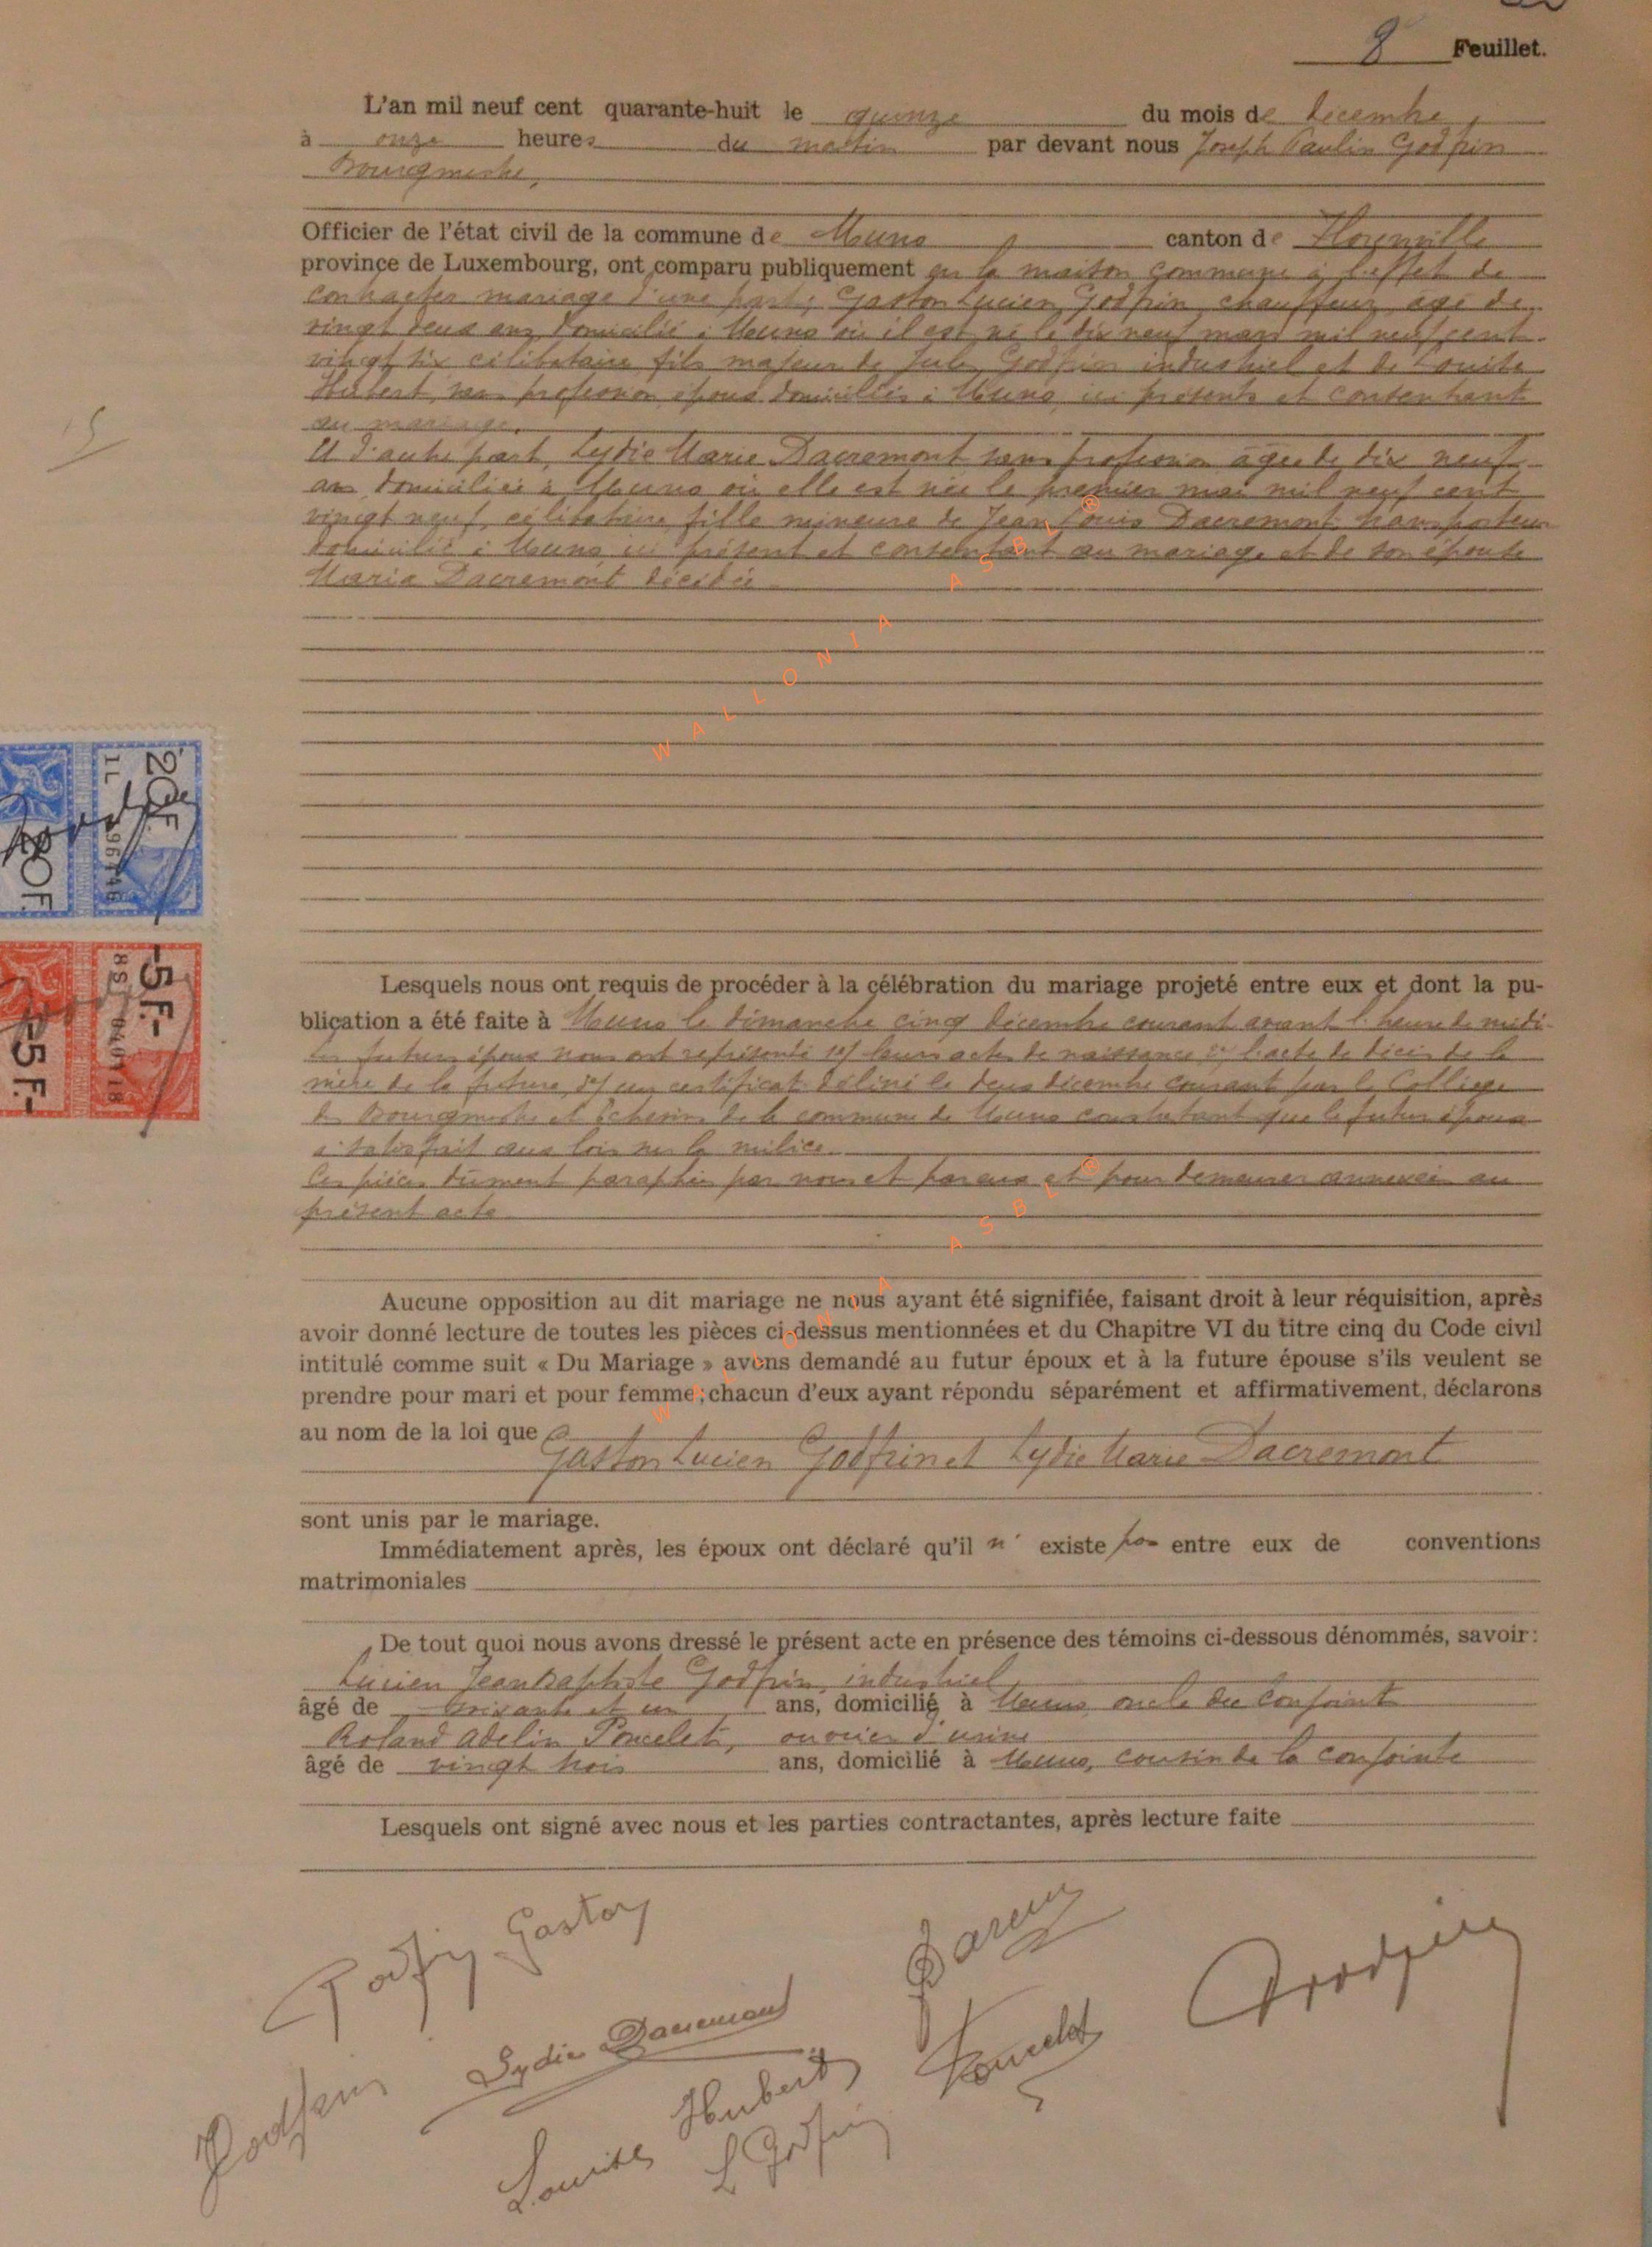 8 Feuillet.
L'an mil neuf cent quarante-huit le quinze du mois de décembre,
à onze heures du matin par devant nous Joseph Paulin Godfrin
Bourgmestre,
Officier de l'état civil de la commune de Muno canton de Florenville
province de Luxembourg, ont comparu publiquement en la maison commune à l'effet de
contracter mariage d'une part, Gaston Lucien Godfrin chauffeur agé de
vingt deux ans domicilié à Muno où il est né le dix neuf mars mil neuf cent
vingt six célibataire fils majeur de Jules Godfrin industriel et de Louise
Hubert, sans profession époux domiciliés à Muno, ici présents et consentant
au mariage.
Et d'autre part, Lydie Marie Dacremont sans profession agée de dix neuf
ans domiciliée à Muno où elle est née le premier mai mil neuf cent
vingt neuf, célibataire, fille mineure de Jean Louis Dacremont, transporteur
domicilié à Muno ici présent et consentant au mariage et de son épouse
Maria Dacremont décédée
Lesquels nous ont requis de procéder à la célébration du mariage projeté entre eux et dont la pu-
blication a été faite à Muno le dimanche cinq décembre courant avant l'heure de midi
les futurs époux nous ont représenté 1°/ leurs actes de naissance 2°/ l'acte de décès de la
mère de la future, 3°/ un certificat délivré le deux décembre courant par le Collège
des Bourgmestre et Echevins de la commune de Muno constatant que le futur époux
a satisfait aux lois sur la milice.
Ces pièces dûment paraphées par nous et par eux et pour demeurer annexées au
présent acte
Aucune opposition au dit mariage ne nous ayant été signifiée, faisant droit à leur réquisition, après
avoir donné lecture de toutes les pièces ci-dessus mentionnées et du Chapitre VI du titre cinq du Code civil
intitulé comme suit « Du Mariage » avons demandé au futur époux et à la future épouse s'ils veulent se
prendre pour mari et pour femme; chacun d'eux ayant répondu séparément et affirmativement, déclarons
au nom de la loi que
Gaston Lucien Godfrin et Lydie Marie Dacremont
sont unis par le mariage.
Immédiatement après, les époux ont déclaré qu'il n' existe pas entre eux de conventions
matrimoniales
De tout quoi nous avons dressé le présent acte en présence des témoins ci-dessous dénommés, savoir:
Lucien Jean Baptiste Godfrin, industriel
âgé de soixante et un ans, domicilié à Muno, oncle du conjoint
Roland Adelin Poncelet, ouvrier d'usine
âgé de vingt trois ans, domicilié à Muno, cousin de la conjointe
Lesquels ont signé avec nous et les parties contractantes, après lecture faite
Godfrin Gaston
Lydie Dacremont
Poncelet
Godfrin
Louise Hubert
L Godfrin
20F.
20F.
-5F.-
-5F.-
WALLONIA ASBL ®
WALLONIA ASBL ®